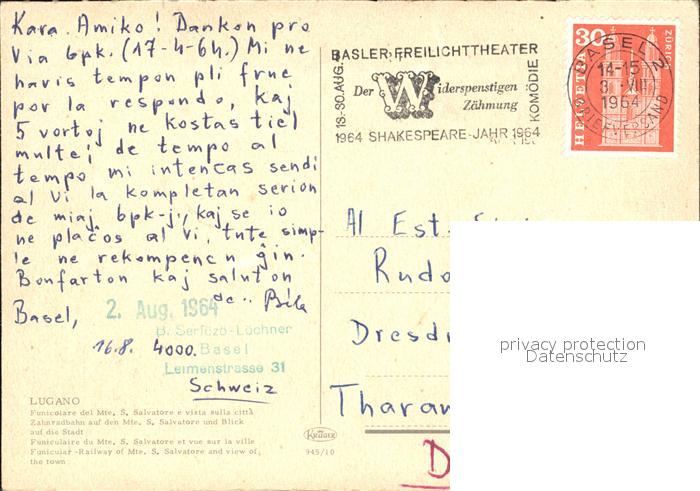 Kara Amiko! Dankon pro
Via bpk. (17-4-64.) Mi ne
havis tempon pli frue
por la respondo, kaj
5 vortoj ne kostas tiel
multe; de tempo al
tempo mi intencas sendi
al Vi la kompletan serion
de miaj bpk-j, kaj se io
ne plaĉos al Vi, tute simp-
le ne rekompencu ĝin.
Bonfarton kaj saluton
de Béla
Basel,
2. Aug. 1964
B. Serfözö-Lochner
16.8. 4000. Basel
Leimenstrasse 31
Schweiz
LUGANO
Funicolare del Mte. S. Salvatore e vista sulla città
Zahnradbahn auf den Mte. S. Salvatore und Blick
auf die Stadt
Funiculaire du Mte. S. Salvatore et vue sur la ville
Funicular-Railway of Mte. S. Salvatore and view of
the town
Krüger
945/10
BASLER FREILICHTTHEATER
18.-30.AUG.
Der Widerspenstigen
Zähmung
KOMÖDIE
1964 SHAKESPEARE-JAHR 1964
30
HELVETIA
ZÜRICH
BASEL 2
14-15
3. VIII
1964
BRIEFVERSAND
Al Est.
Rudo
Dresd
Tharan
D
privacy protection
Datenschutz